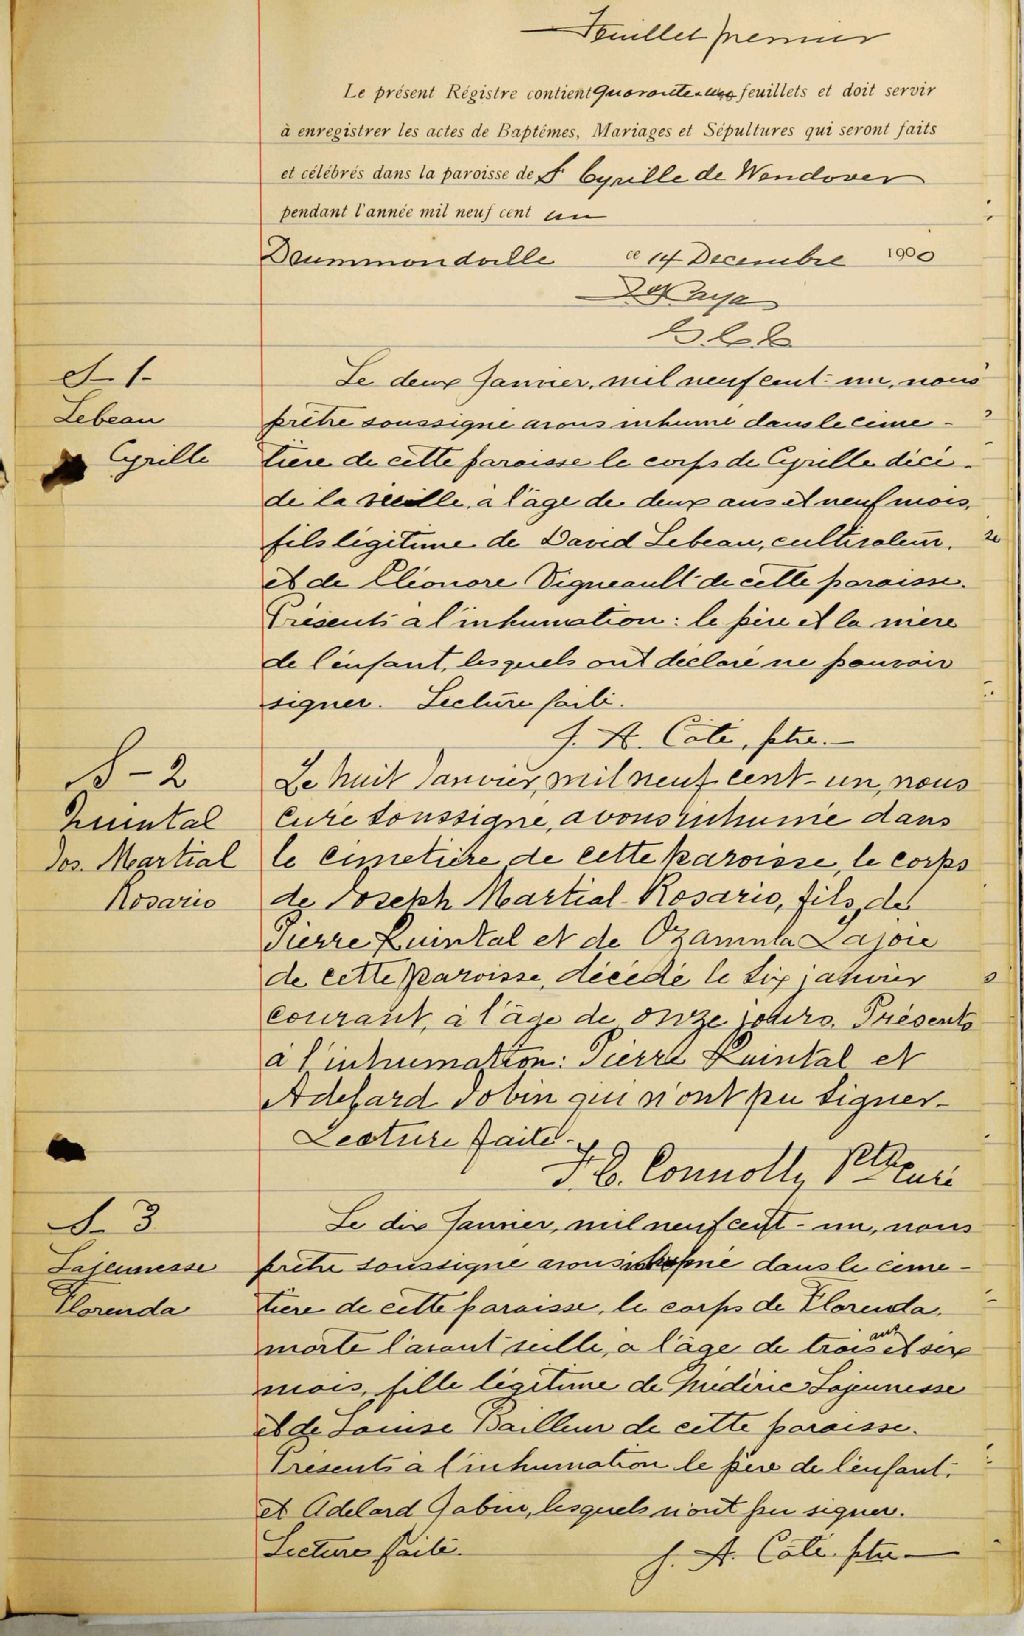 Feuillet premier
Le présent Régistre contient quarante-une feuillets et doit servir
à enregistrer les actes de Baptêmes, Mariages et Sépultures qui seront faits
et célébrés dans la paroisse de St Cyrille de Wendover
pendant l'année mil neuf cent un
Drummondville ce 14 Decembre 1900
S-1-
Lebeau
Cyrille
Le deux Janvier, mil neuf cent-un, nous
prêtre soussigné avons inhumé dans le cime-
tière de cette paroisse le corps de Cyrille décé-
dé la veille, à l'âge de deux ans et neuf mois,
fils légitime de David Lebeau, cultivateur,
et de Eléonore Vigneault de cette paroisse.
Présents à l'inhumation: le père et la mère
de l'enfant, lesquels ont déclaré ne pouvoir
signer. Lecture faite.
J. A. Côté, ptre.-
S-2
Quintal
Jos. Martial
Rosario
Le huit Janvier, mil neuf cent-un, nous
Curé soussigné, avons inhumé dans
le cimetière de cette paroisse, le corps
de Joseph Martial Rosario, fils de
Pierre Quintal et de Lajoie
de cette paroisse, décédé le six janvier
courant, à l'âge de onze jours. Présents
à l'inhumation: Pierre Quintal et
Adélard Jobin qui n'ont pu signer-
Lecture faite-
F. C. Connolly Ptre Curé
S. 3
Lajeunesse
Florenda
Le dix Janvier, mil neuf cent-un, nous
prêtre soussigné avons inhumé dans le cime-
tière de cette paroisse, le corps de Florenda,
morte l'avant veille, à l'âge de trois ans et six
mois, fille légitime de Médéric Lajeunesse
et de Louise Bailleur de cette paroisse.
Présents à l'inhumation le père de l'enfant,
et Adelard Jobin, lesquels n'ont pu signer.
Lecture faite.
J. A. Côté. ptre-